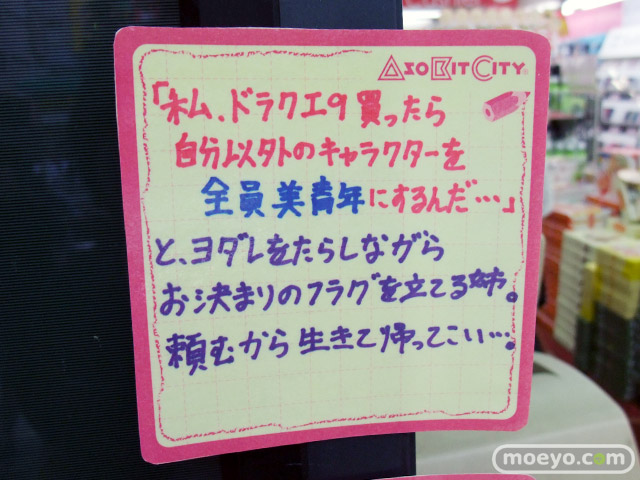 ASOBITCITY
「私、ドラクエ9買ったら
自分以外のキャラクターを
全員美青年にするんだ…」
と、ヨダレをたらしながら
お決まりのフラグを立てる姉。
頼むから生きて帰ってこい…。
moeyo.com